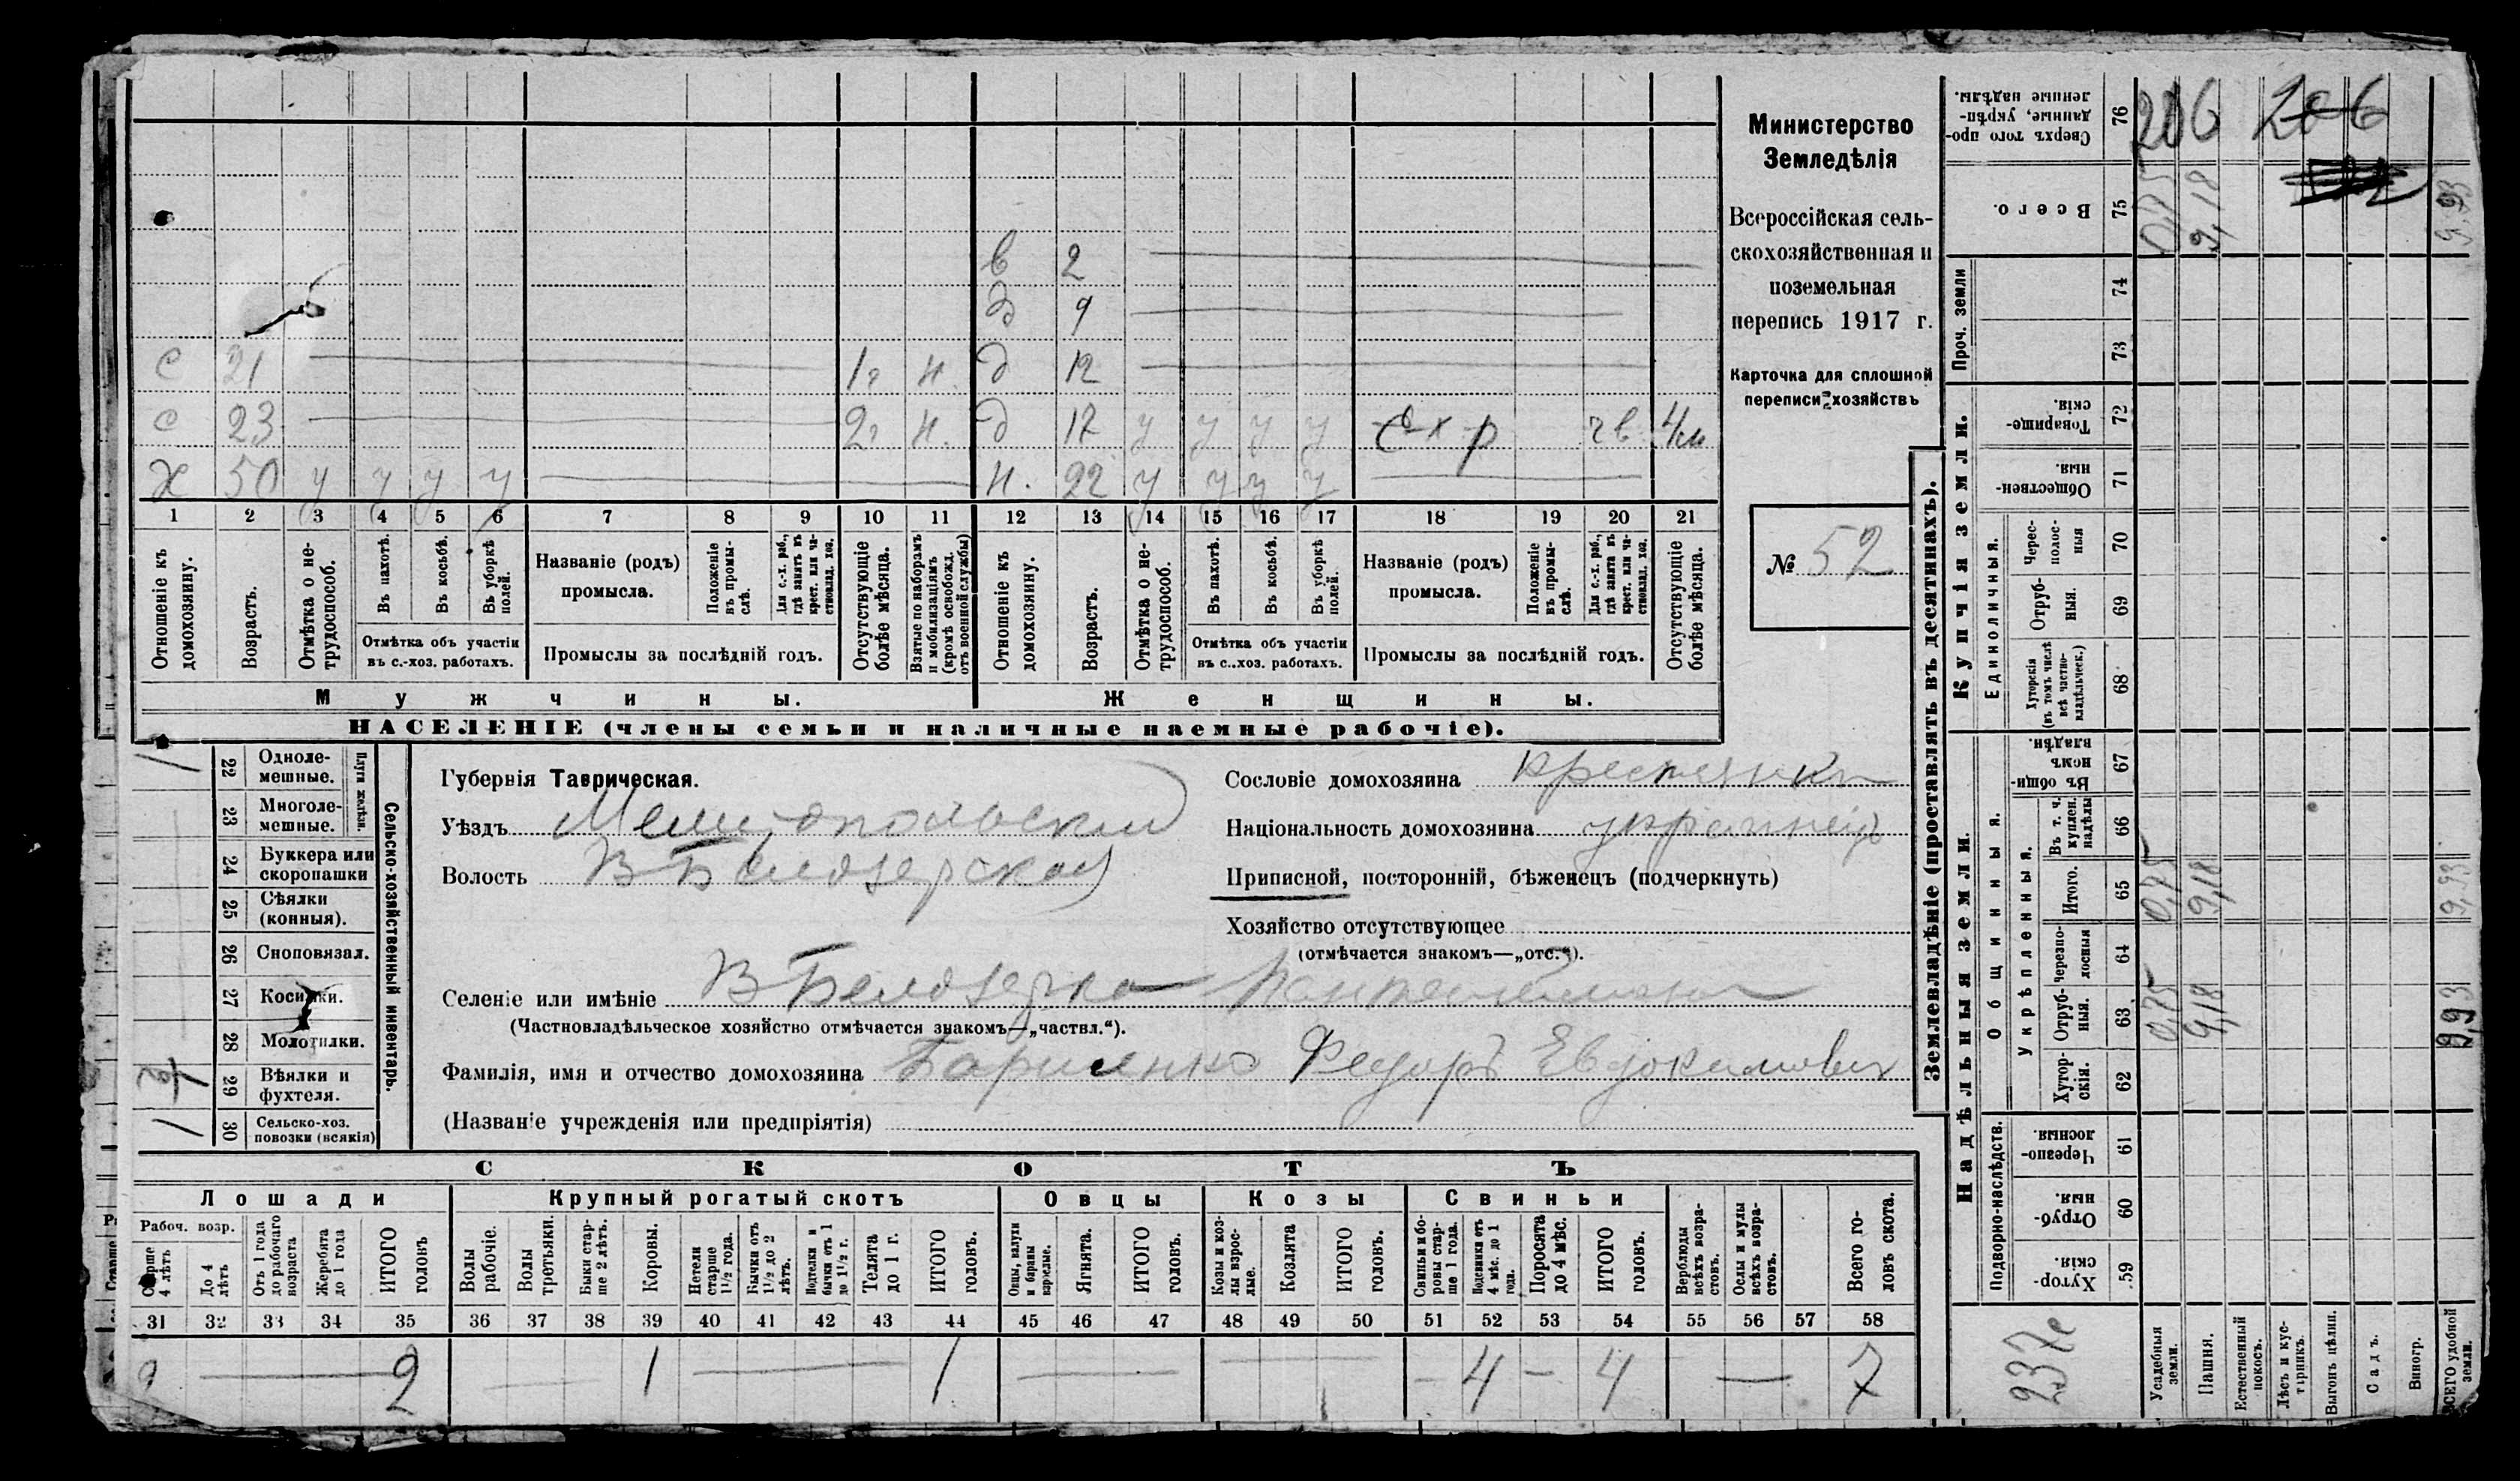 Министерство
Земледѣлія
Всероссійская сель-
скохозяйственная и
поземельная
перепись 1917 г.
Карточка для сплошной
переписи хозяйствъ
№ 52
в 2
д 9
с 21 1г н. д 12
с 23 2г н. д 17 у у у у с х р ч в 4м
Х 50 у у у у н. 22 у у у у
1 2 3 4 5 6 7 8 9 10 11 12 13 14 15 16 17 18 19 20 21
Отношеніе къ домохозяину.
Возрастъ.
Отмѣтка о не-трудоспособ.
Въ пахотѣ.
Въ косьбѣ.
Въ уборкѣ полей.
Отмѣтка объ участіи
въ с.-хоз. работахъ.
Названіе (родъ)
промысла.
Положеніе въ промы-слѣ.
Для с.-х. раб., гдѣ занятъ въ крест. или ча-стновлад. хоз.
Промыслы за послѣдній годъ.
Отсутствующіе болѣе мѣсяца.
Взятые по наборамъ и мобилизаціямъ (кромѣ освобожд. отъ военной службы)
Отношеніе къ домохозяину.
Возрастъ.
Отмѣтка о не-трудоспособ.
Въ пахотѣ.
Въ косьбѣ.
Въ уборкѣ полей.
Отмѣтка объ участіи
въ с..хоз. работахъ.
Названіе (родъ)
промысла.
Положеніе въ промы-слѣ.
Для с.-х. раб., гдѣ занята въ крест. или ча-стновлад. хоз.
Промыслы за послѣдній годъ.
Отсутствующіе болѣе мѣсяца.
Мужчины. Женщины.
НАСЕЛЕНІЕ (члены семьи и наличные наемные рабочіе).
Сельско-хозяйственный инвентарь.
Плуги желѣзн.
1 22 Одноле-мешные.
23 Многоле-мешные.
24 Буккера или скоропашки
25 Сѣялки (конныя).
26 Сноповязал.
27 Косилки.
28 Молотилки.
1/2 29 Вѣялки и фухтеля.
1 30 Сельско-хоз. повозки (всякія)
Губернія Таврическая.
Уѣздъ Мелитопольский
Волость В Белозерская
Селеніе или имѣніе В Белозерка
(Частновладѣльческое хозяйство отмѣчается знакомъ—„частвл.“).
Фамилія, имя и отчество домохозяина Федоръ Евдокимович
(Названіе учрежденія или предпріятія)
Сословіе домохозяина крестянинъ
Національность домохозяина украинецъ
Приписной, посторонній, бѣженецъ (подчеркнуть)
Хозяйство отсутствующее
(отмѣчается знакомъ—„отс.“).
СКОТЪ
Лошади Крупный рогатый скотъ Овцы Козы Свиньи
Рабоч. возр.
Старше 4 лѣтъ
До 4 лѣтъ
Отъ 1 года до рабочаго возраста
Жеребята до 1 года
ИТОГО головъ
Волы рабочіе.
Волы третьяки.
Быки стар-ше 2 лѣтъ.
Коровы.
Нетели старше 1½ года.
Бычки отъ 1½ до 2 лѣтъ.
Подтелки и бычки отъ 1 до 1½ г.
Телята до 1 г.
ИТОГО головъ.
Овцы, валухи и бараны взрослые.
Ягнята.
ИТОГО головъ.
Козы и коз-лы взрос-лые.
Козлята
ИТОГО головъ.
Свиньи и бо-ровы стар-ше 1 года.
Подсвинки отъ 4 мѣс. до 1 года.
Поросята до 4 мѣс.
ИТОГО головъ.
Верблюды всѣхъ возра-стовъ.
Ослы и мулы всѣхъ возра-стовъ.
Всего го-ловъ скота.
31 32 33 34 35 36 37 38 39 40 41 42 43 44 45 46 47 48 49 50 51 52 53 54 55 56 57 58
2 2 1 1 4 4 7
Землевладѣніе (проставлять въ десятинахъ).
Сверхъ того про-данные, укрѣп-ленные надѣлы. 76 206 206
Всего. 75 0,75 9,18 9.93
Проч. земли 74
73
Купчія земли.
Товарище-скія. 72
Обществен-ныя 71
Единоличныя.
Черес-полос-ныя 70
Отруб-ныя. 69
Хуторскія (въ томъ числѣ всѣ частно-владѣльческ.) 68
Надѣльныя земли.
Общинныя.
Въ общи-номъ владѣн. 67
Укрѣпленныя.
Въ т. ч. куплен. надѣлы 66
Итого. 65 0,75 9,18 9,93
Черезпо-лосныя 64
Отруб-ныя. 63 0,75 9,18 9,93
Хутор-скія. 62
Подворно-наслѣдств.
Черезпо-лосныя. 61
Отруб-ныя. 60
Хутор-скія. 59
237е
Усадебныя земли.
Пашня.
Естественный покосъ.
Лѣсъ и кус-тарникъ.
Выгонъ цѣлин.
Садъ.
Виногр.
ВСЕГО удобной земли.